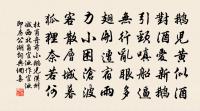 鵝兒黃似酒
對酒愛新鵝
引頸嗔船逼
無行亂眼多
翅開遭宿雨
力小困滄波
客散層城暮
狐狸奈若何
杜甫舟前小鵝兒漢州
城西北角官池作官池
即房公湖詩典網書